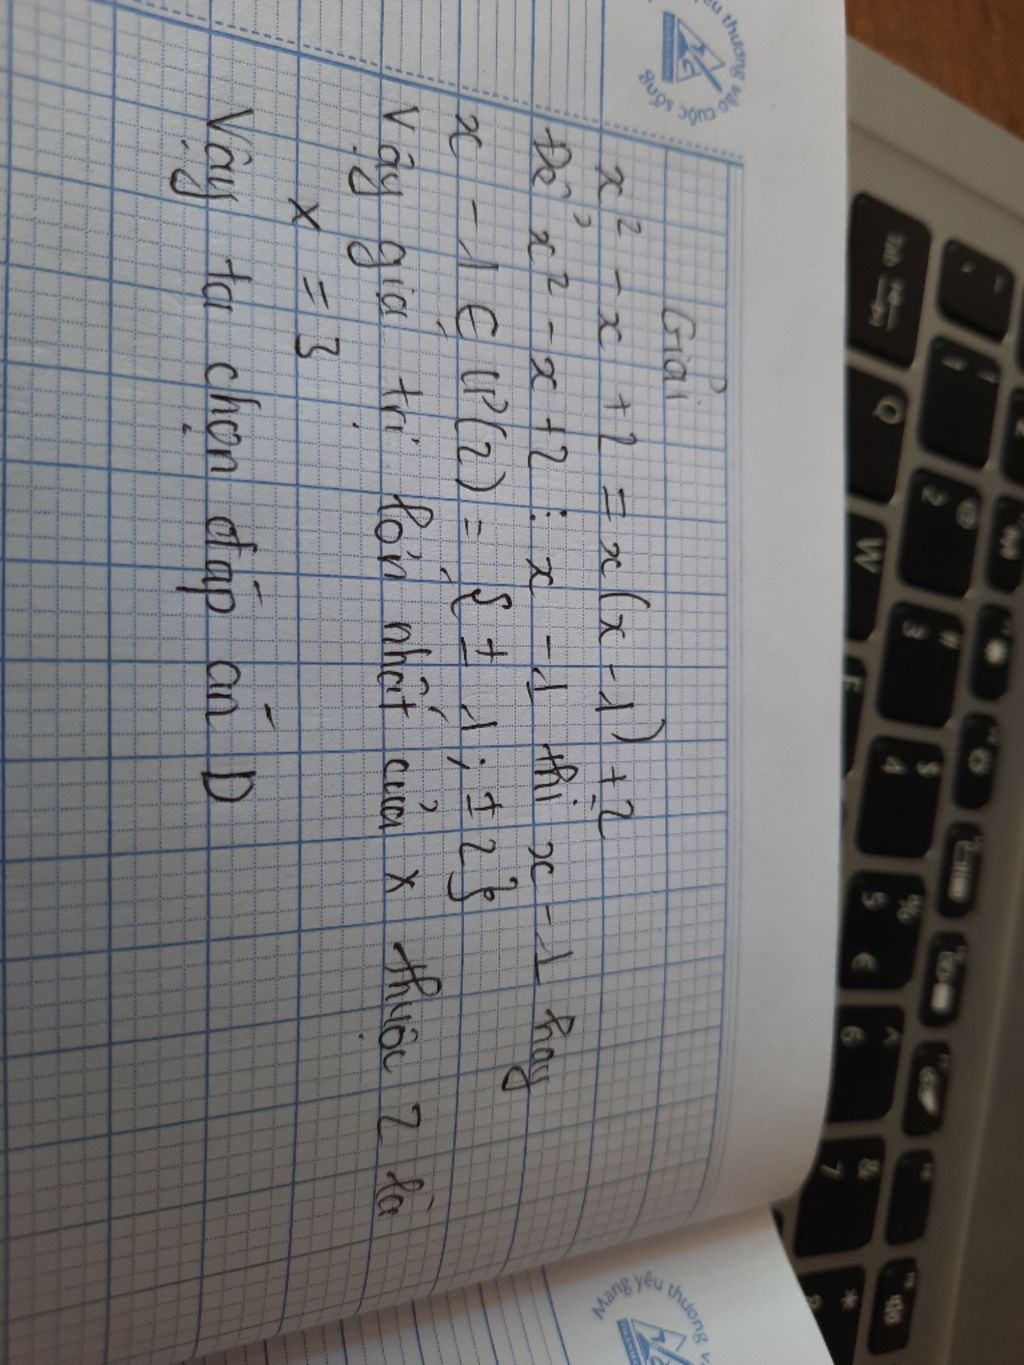 Giải
x² - x + 2 = x(x - 1) + 2
Để x² - x + 2 ⋮ x - 1 thì x - 1 hay
x - 1 ∈ Ư(2) = { ± 1 ; ± 2 }
Vậy giá trị lớn nhất của x thuộc Z là
x = 3
Vậy ta chọn đáp án D
yêu thương vào cuộc sống
Mang yêu thương v
Tab
Q
W
E
2
3
#
4
$
5
%
€
6
^
7
&
*